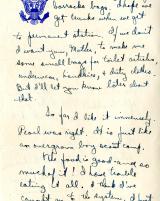 barracks bags. I hope we
get trunks when we get
to permanent station. If we don't
I want you, Mother, to make me
some small bags for toilet articles,
underwear, hankies, & dirty clothes.
But I'll let you know later about
that.
So far I like it immensely.
Pearl was right. It is just like
an overgrown boy scout camp.
The food is good and so
much of it! I have trouble
eating it all. I think I've
caught on to the system, I put